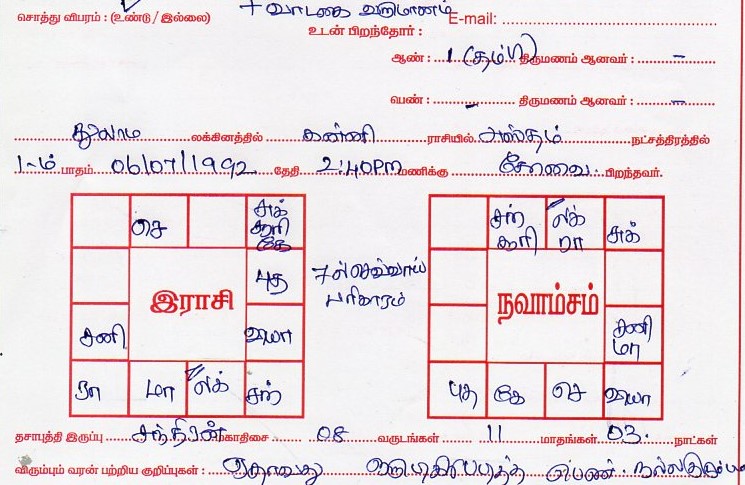 + வாடகை வருமானம்
சொத்து விபரம் : (உண்டு / இல்லை) E-mail:
உடன் பிறந்தோர் :
ஆண் : 1 (தம்பி) திருமணம் ஆனவர் : –
பெண் : – திருமணம் ஆனவர் : –
துலாம் லக்கினத்தில் கன்னி ராசியில் அஸ்தம் நட்சத்திரத்தில்
1-ம் பாதம் 06/07/1992 தேதி 2:40PM மணிக்கு கோவை பிறந்தவர்.
செ சுக் சூரி கே
புத
இராசி
சனி வியா
ரா மா லக் சந்
7ல் செவ்வாய்
பரிகாரம்
சந் சூரி லக் ரா சுக்
நவாம்சம்
சனி மா
புத கே செ வியா
தசாபுத்தி இருப்பு சந்திரன் மகாதிசை 08 வருடங்கள் 11 மாதங்கள் 03 நாட்கள்
விரும்பும் வரன் பற்றிய குறிப்புகள் : ஏதாவது டிகிரி படித்த பெண்.